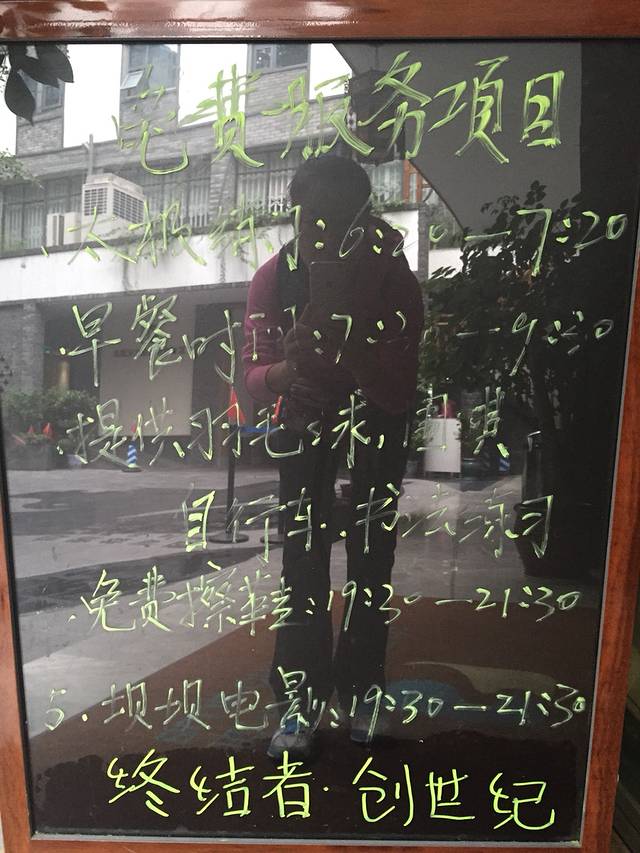 免费服务项目
.太极练习:6:20—7:20
.早餐时间:7:30—9:30
.提供羽毛球,围棋,
自行车.书法练习
.免费擦鞋:19:30—21:30
5.坝坝电影:19:30—21:30
终结者·创世纪